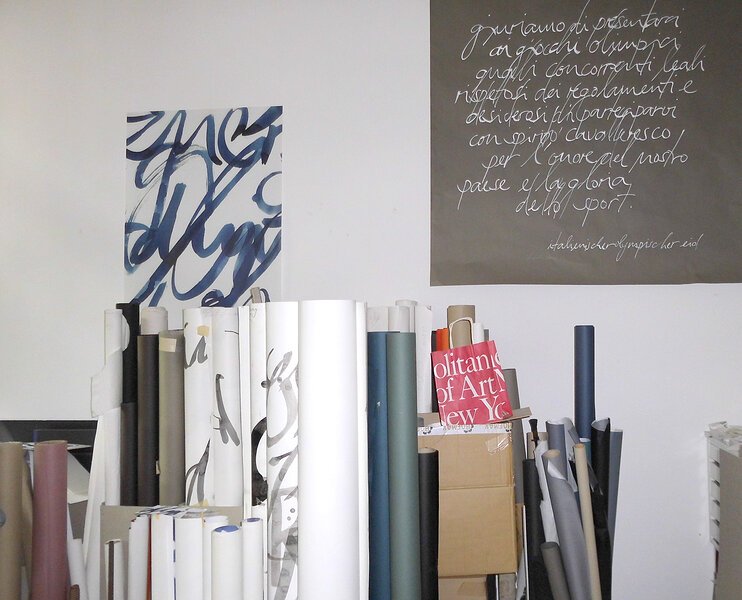 giuriamo di presentarci
ai giochi olimpici
quali concorrenti leali
rispettosi dei regolamenti e
desiderosi di parteciparvi
con spirito cavalleresco
per l'onore del nostro
paese e la gloria
dello sport.
italienischer olympischer eid
olitan
of Art
New Yo